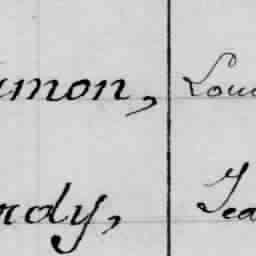 umon, Lou
rdy, Jea